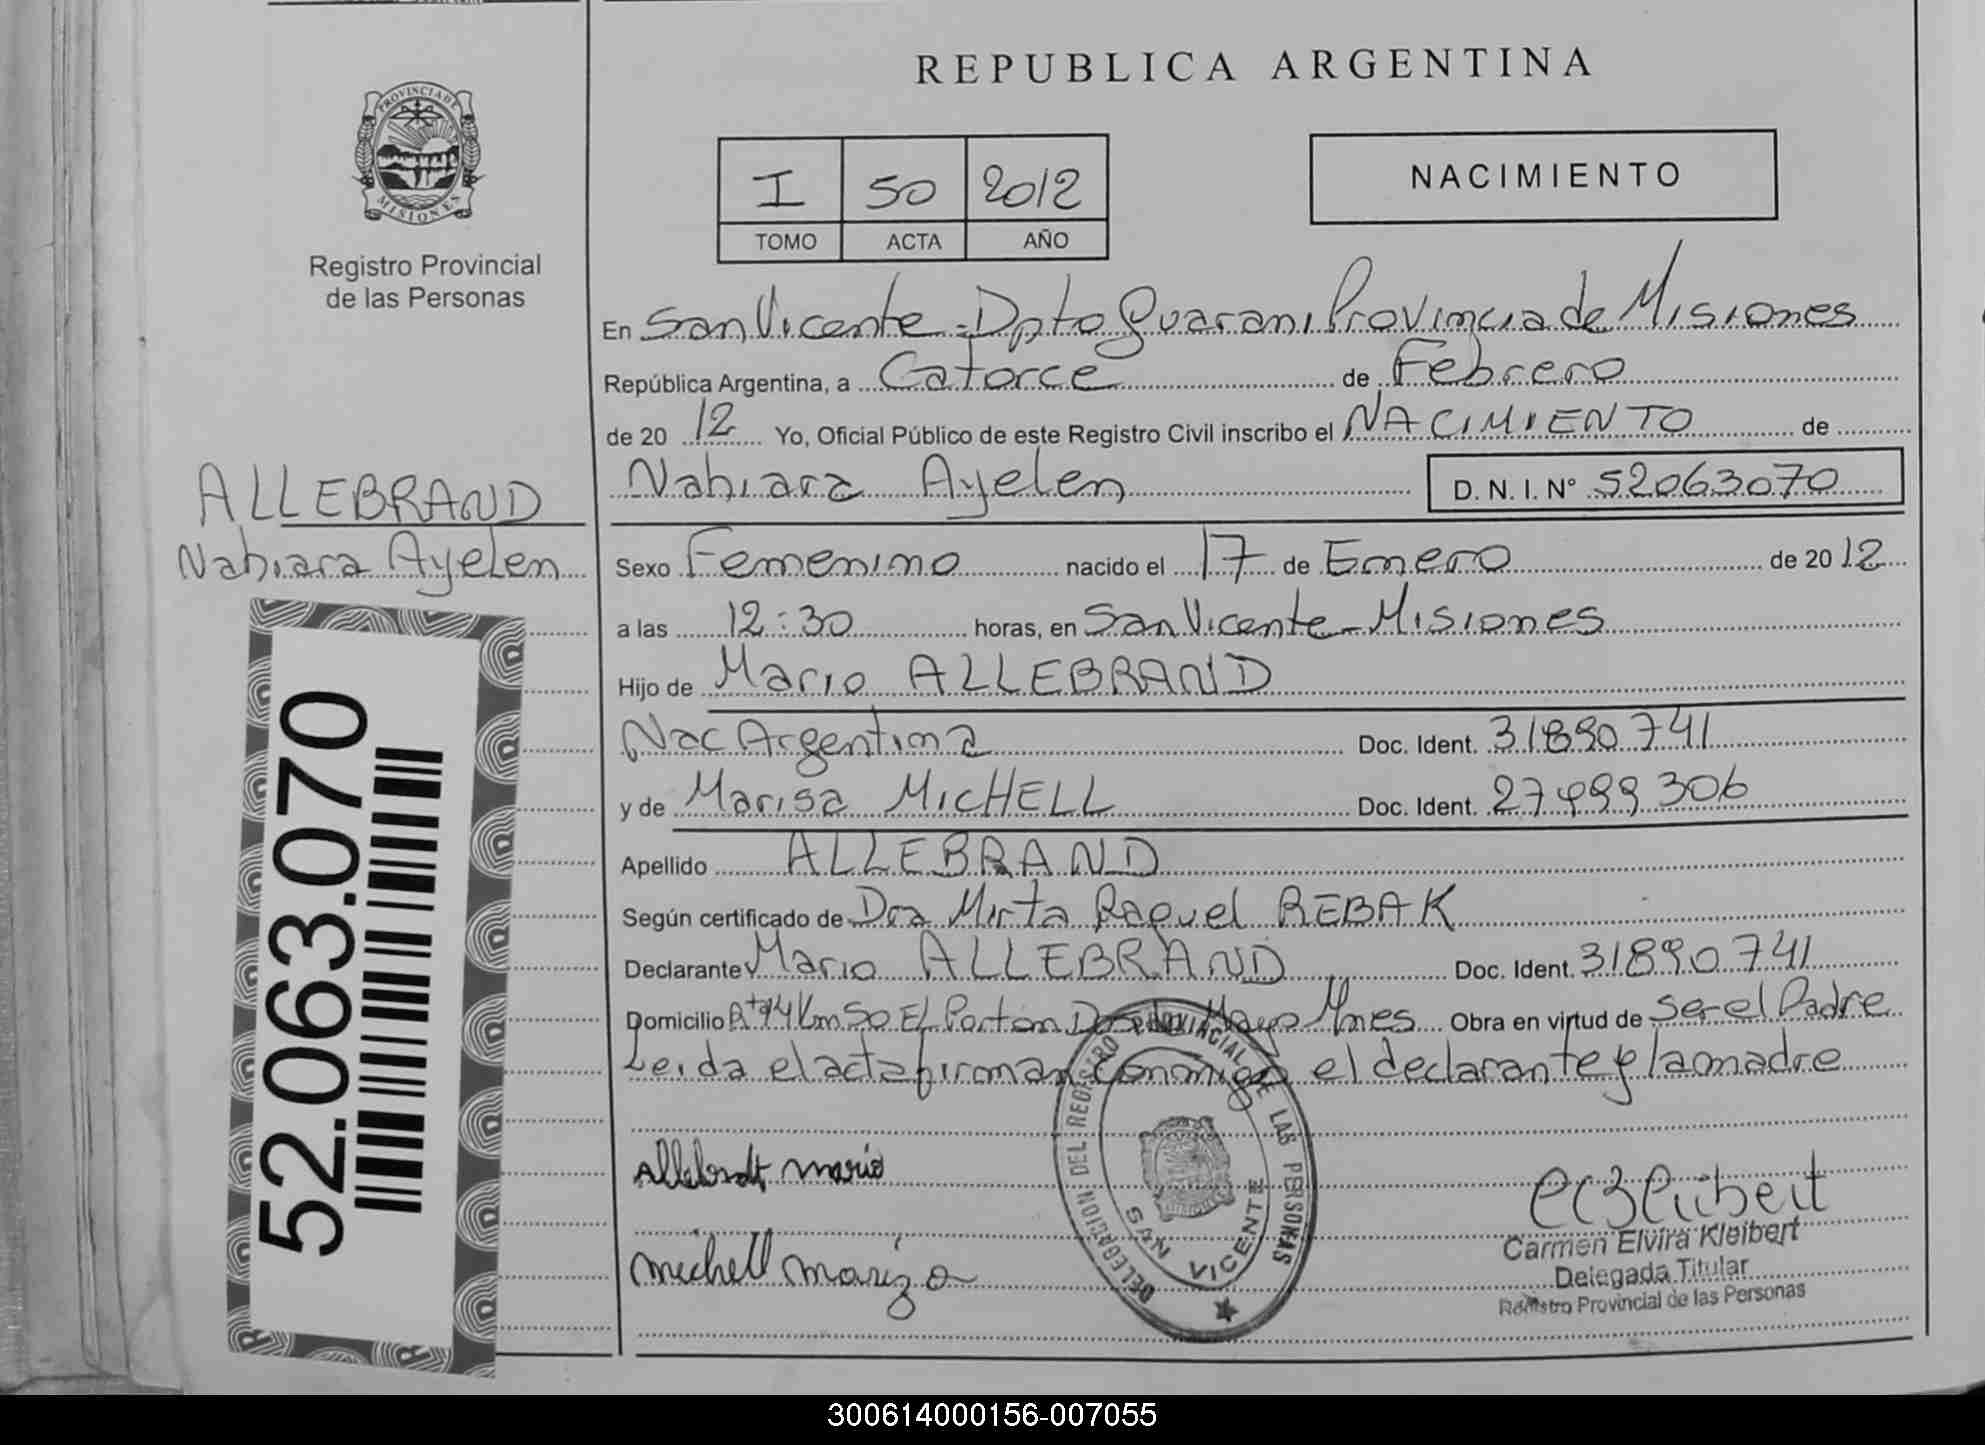 REPUBLICA ARGENTINA
PROVINCIA DE
MISIONES
Registro Provincial
de las Personas
I 50 2012
TOMO ACTA AÑO
NACIMIENTO
En San Vicente - Dpto Guarani Provincia de Misiones
República Argentina, a Catorce de Febrero
de 20 12 Yo, Oficial Público de este Registro Civil inscribo el NACIMIENTO de
Nahiara Ayelen D. N. I. N° 52063070
ALLEBRAND
Nahiara Ayelen
Sexo Femenino nacido el 17 de Enero de 20 12
a las 12:30 horas, en San Vicente - Misiones
Hijo de Mario ALLEBRAND
Nac Argentina Doc. Ident. 31890741
y de Marisa MICHELL Doc. Ident. 27499306
Apellido ALLEBRAND
Según certificado de Dra Mirta Raquel REBAK
Declarante Mario ALLEBRAND Doc. Ident. 31890741
Domicilio Rta 14 Km 50 El Portón Dos de Mayo Mnes Obra en virtud de Ser el Padre
Leida el acta firman conmigo el declarante y la madre
52.063.070
Mario
michell mariza
DELEGACION DEL REGISTRO PROVINCIAL DE LAS PERSONAS
SAN VICENTE
Carmen Elvira Kleibert
Delegada Titular
Registro Provincial de las Personas
300614000156-007055